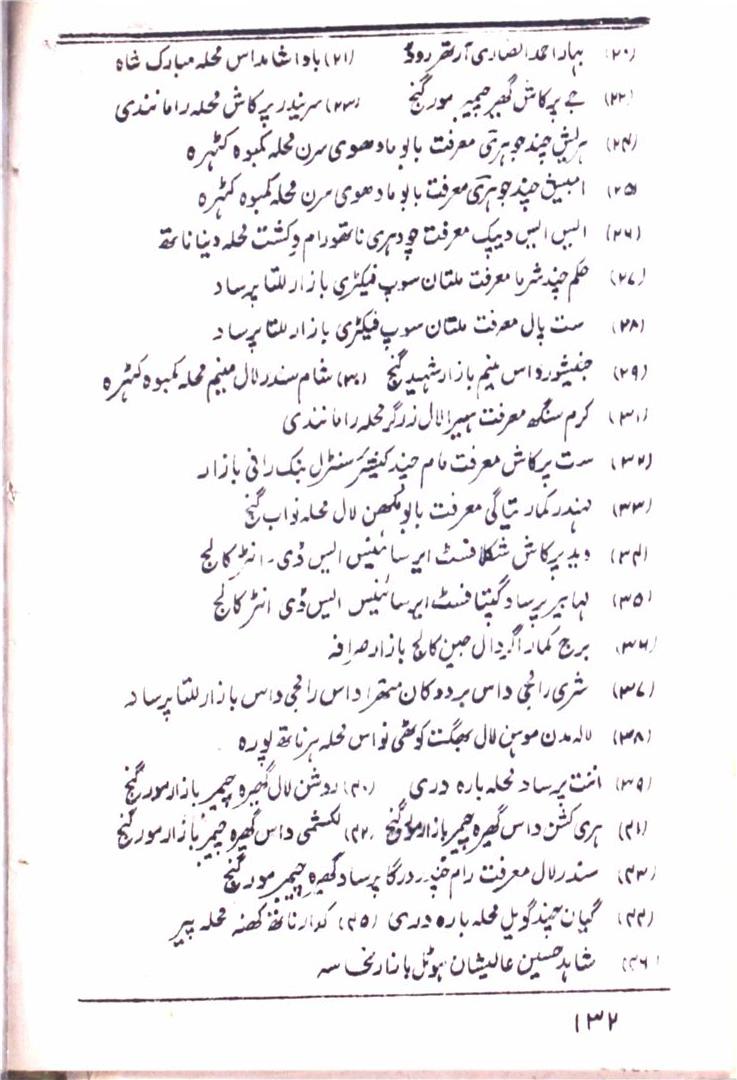 (۲۰) بہار احمد انصاری آرتھر روڈ (۲۱) باوا شامداس محلہ مبارک شاہ
(۲۲) جے پرکاش گھیر جیمبر مورگنج (۲۳) سرنیدر پرکاش محلہ رامانندی
(۲۴) ہریش چند جوہری معرفت بابو مادھوی سرن محلہ کمبوہ کٹہرہ
(۲۵) امبیش چند جوہری معرفت بابو مادھوی سرن محلہ کمبوہ کٹہرہ
(۲۶) ایس ایس دیپک معرفت چودہری ناتھورام دکشت محلہ دینا ناتھ
(۲۷) حکم چند شرما معرفت ملتان سوپ فیکٹری بازار للتا پرساد
(۲۸) ست پال معرفت ملتان سوپ فیکٹری بازار للتا پرساد
(۲۹) داس منیم بازار شہید گنج (۳۰) شام سندر لال منیم محلہ کمبوہ کٹہرہ
(۳۱) کرم سنگھ معرفت ہیرا لال زرگر محلہ رامانندی
(۳۲) ست پرکاش معرفت مام چند کیشیر سنٹرل بنک رانی بازار
(۳۳) مہندر کمار تیاگی معرفت بابو مکھن لال محلہ نواب گنج
(۳۴) وید پرکاش شکلا فسٹ ایر سائنس ایس ڈی۔ انٹر کالج
(۳۵) مہابیر پرساد گپتا فسٹ ایر سائنیس ایس ڈی انٹر کالج
(۳۶) برج کمار اگروال جین کالج بازار صرافہ
(۳۷) شری رانجی داس بر دوکان متھرا داس رانجی داس بازار للتا پرساد
(۳۸) لالہ مدن موہن لال بھگت کوٹھی نواس محلہ ہرناتھ پورہ
(۳۹) اننت پرساد محلہ بارہ دری (۴۰) روشن لال گھیرہ چیمبر بازار مورگنج
(۴۱) ہری کشن داس گھیرہ چیمبر بازار مورگنج (۴۲) لکشمی داس گھیرہ چیمبر بازار مورگنج
(۴۳) سندر لال معرفت رام چندر درگا پرساد گھیرہ چیمبر مورگنج
(۴۴) گیان چند گویل محلہ بارہ دری (۴۵) کدار ناتھ کھنہ محلہ پیر
(۴۶) شاہد حسین عالیشان ہوٹل بازار نخاسہ
۱۳۲